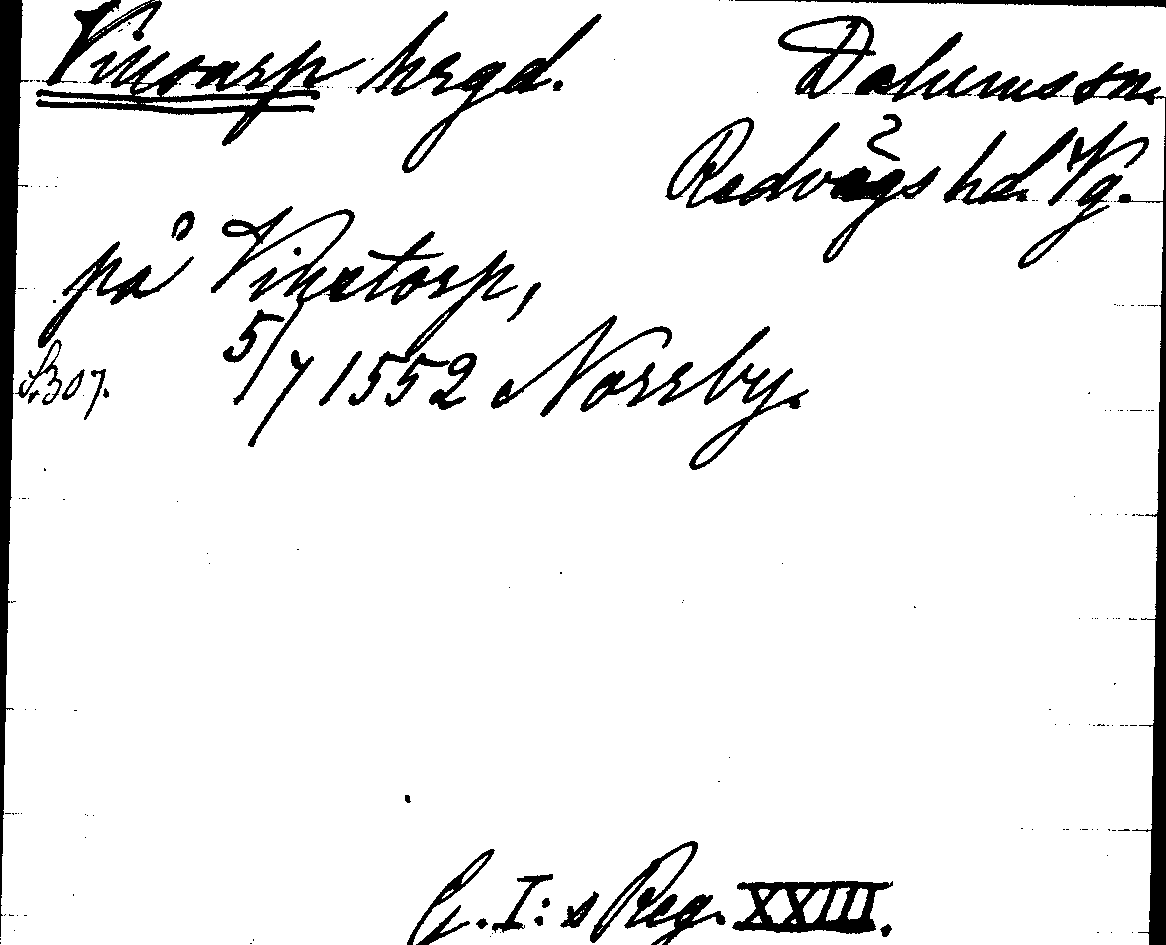 Vinsarp hrgd. Dalums sn.
Redvägs hd. Vg.
på Vinetorp,
S. 307. 5/7 1552 Norrby.
G. I:s Reg. XXIII.